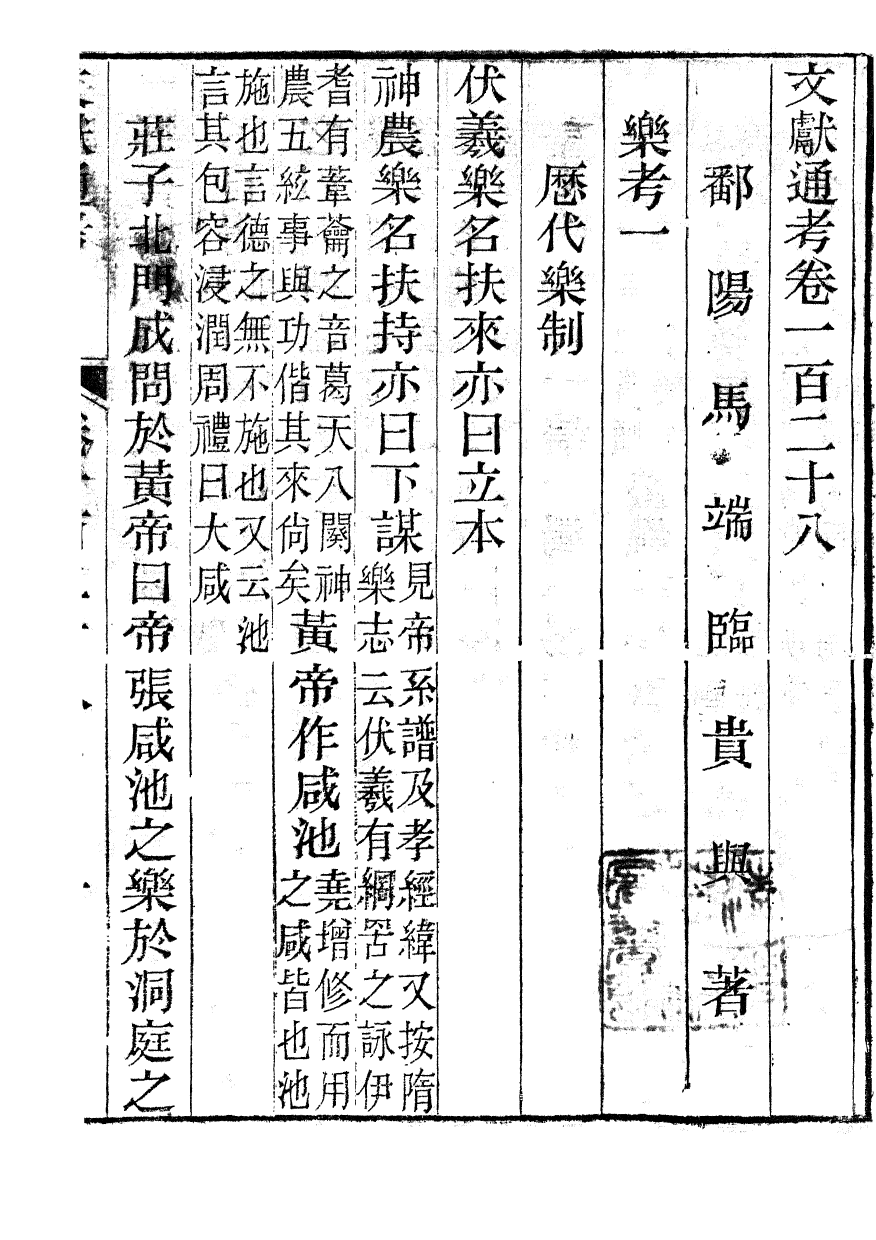 文獻通考卷一百二十八
鄱陽馬端臨貴與著
樂考一
厯代樂制
伏羲樂名扶來亦曰立本
神農樂名扶持亦曰下謀
見帝系譜及孝經緯又按隋
樂志云伏羲有網罟之詠伊
耆有葦籥之音葛天八闋神
農五絃事與功偕其來尚矣
黃帝作咸池
堯增修而用
之咸皆也池
施也言德之無不施也又云池
言其包容浸潤周禮曰大咸
莊子北門成問於黃帝曰帝張咸池之樂於洞庭之